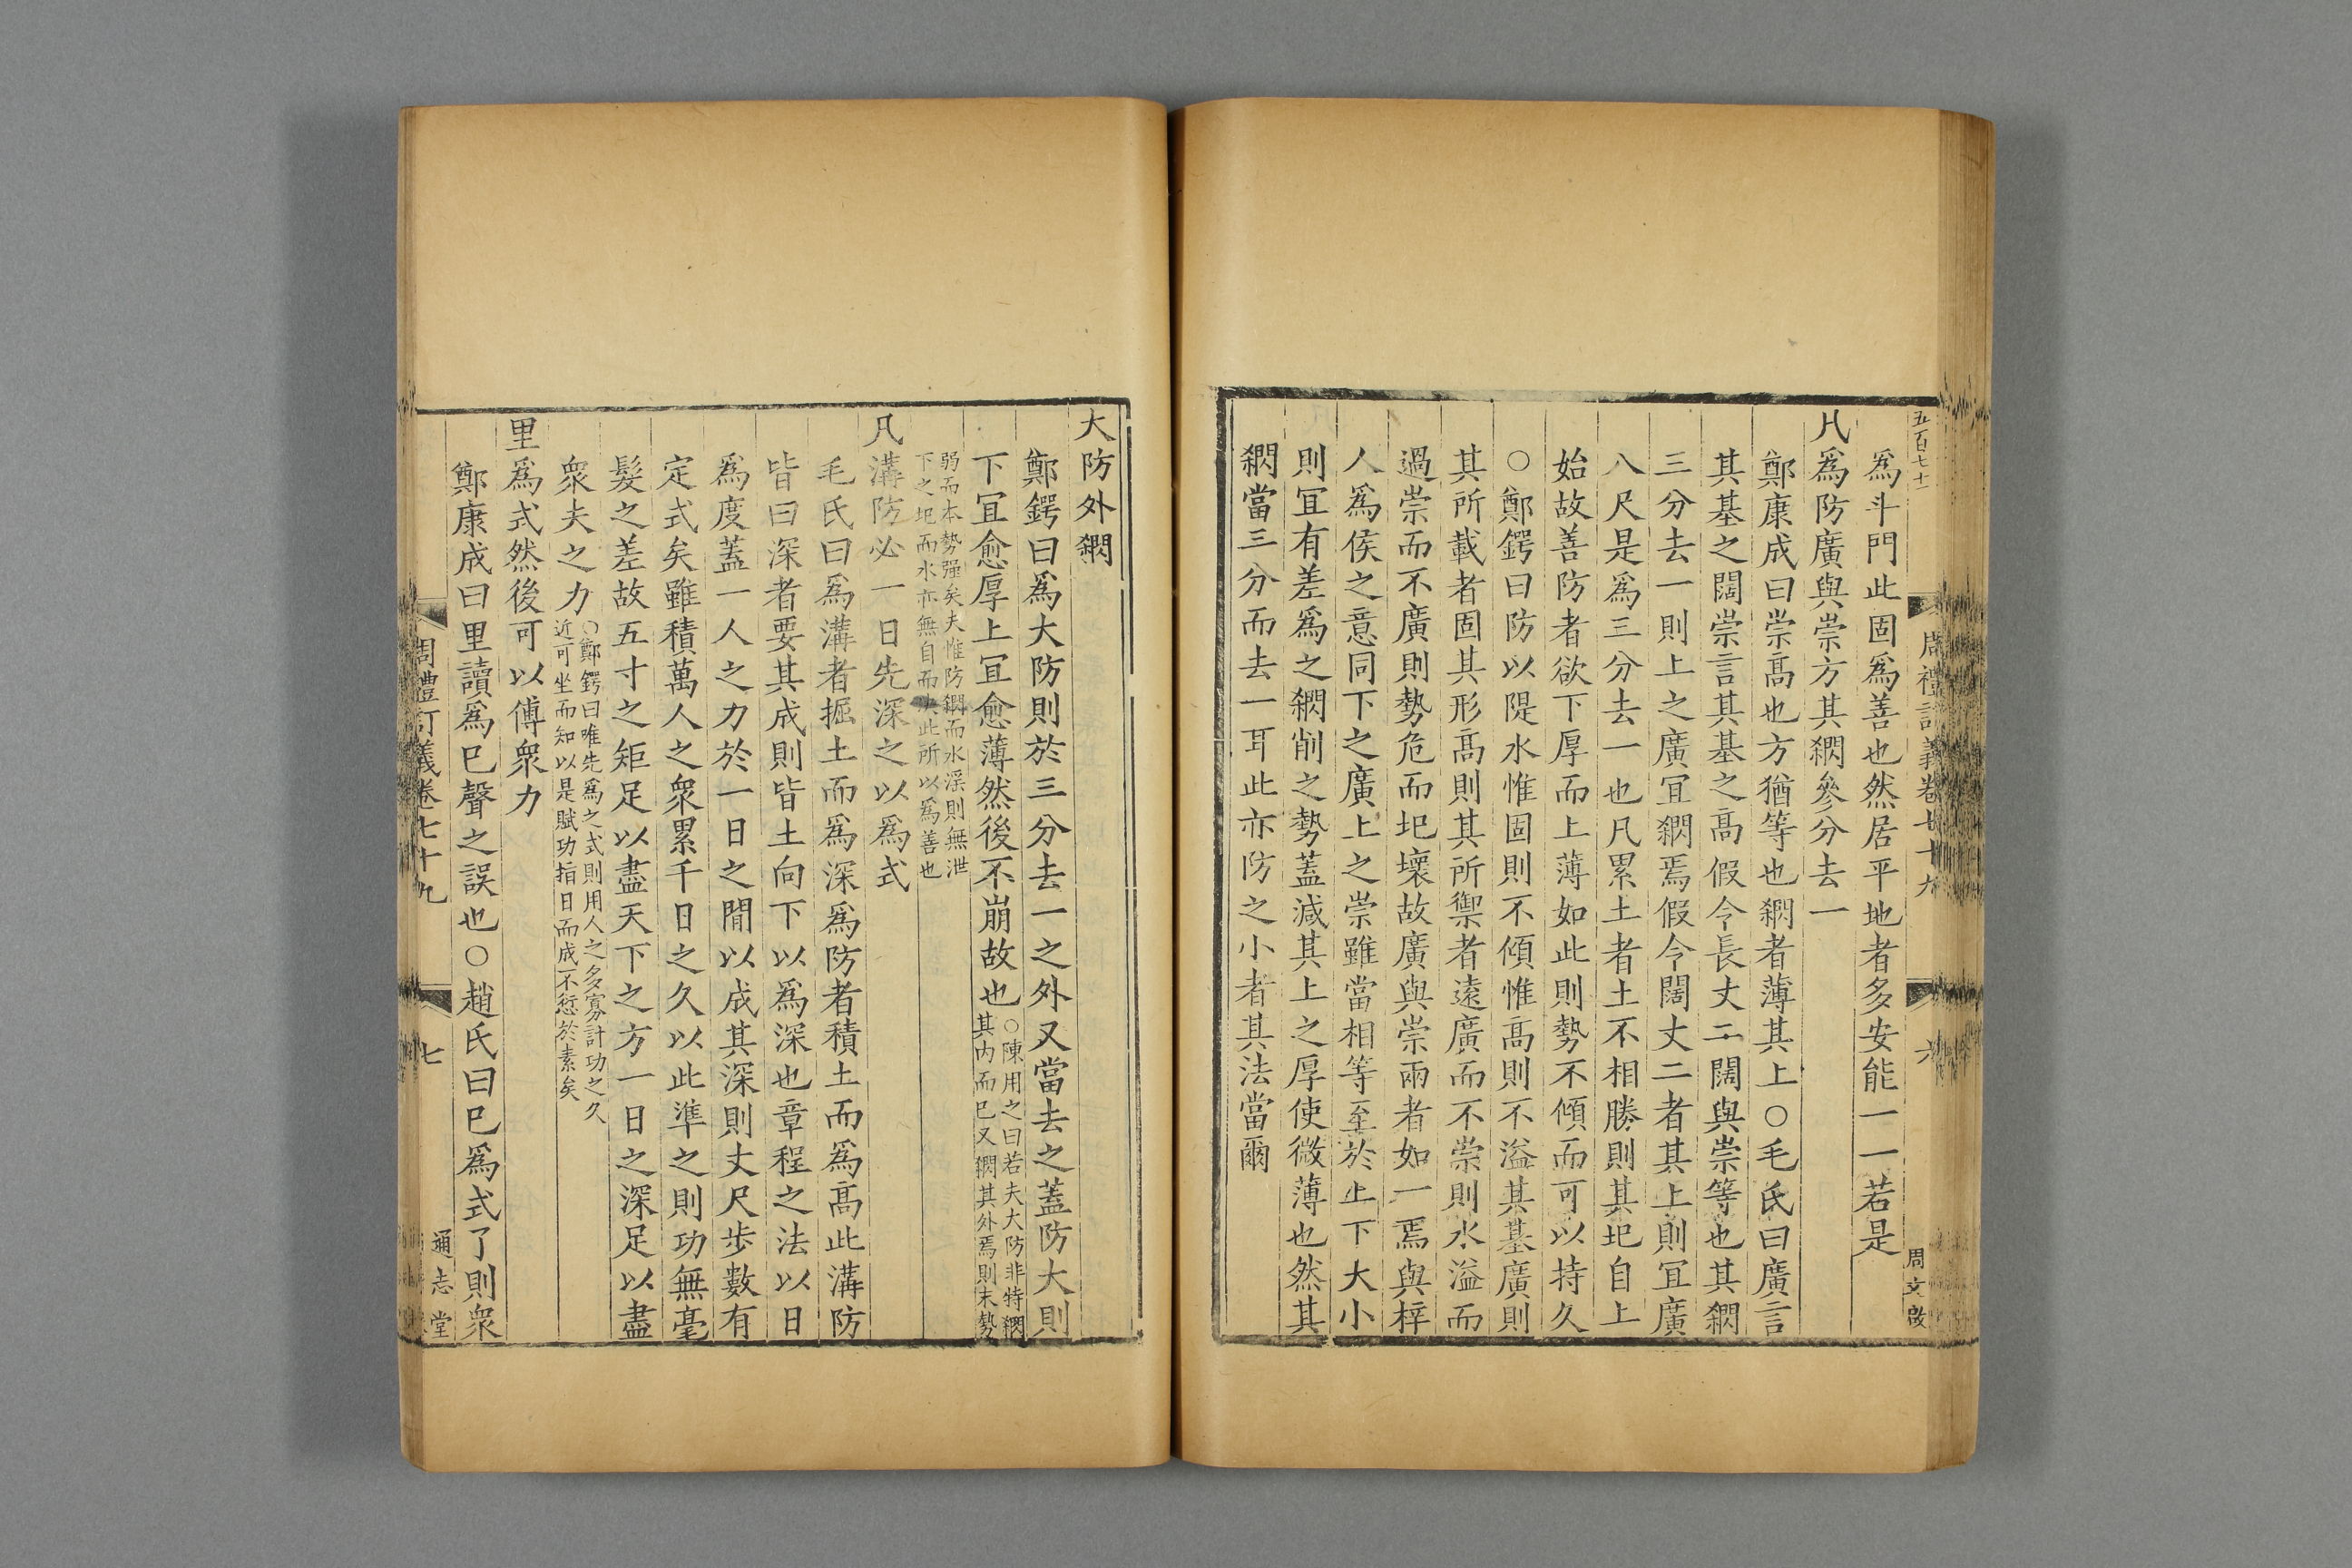 五百七十一
周禮訂義卷七十九
六
周文啟
爲斗門此固爲善也然居平地者多安能一一若是
凡爲防廣與崇方其𥻦參分去一
鄭康成曰崇高也方猶等也𥻦者薄其上○毛氏曰廣言
其基之闊崇言其基之高假令長丈二闊與崇等也其𥻦
三分去一則上之廣宜𥻦焉假令闊丈二者其上則宜廣
八尺是爲三分去一也凡累土者土不相勝則其圯自上
始故善防者欲下厚而上薄如此則勢不傾而可以持久
○鄭鍔曰防以隄水惟固則不傾惟高則不溢其基廣則
其所載者固其形高則其所禦者遠廣而不崇則水溢而
過崇而不廣則勢危而圯壞故廣與崇兩者如一焉與梓
人爲侯之意同下之廣上之崇雖當相等至於上下大小
則宜有差爲之𥻦削之勢蓋減其上之厚使微薄也然其
𥻦當三分而去一耳此亦防之小者其法當爾
大防外𥻦
鄭鍔曰爲大防則於三分去一之外又當去之蓋防大則
下宜愈厚上宜愈薄然後不崩故也○陳用之曰若夫大防非特𥻦
其内而已又𥻦其外焉則末勢
弱而本勢强矣夫惟防𥻦而水淫則無泄
下之圯而水亦無自而決此所以爲善也
凡溝防必一日先深之以爲式
毛氏曰爲溝者掘土而爲深爲防者積土而爲高此溝防
皆曰深者要其成則皆土向下以爲深也章程之法以日
爲度蓋一人之力於一日之間以成其深則丈尺步數有
定式矣雖積萬人之衆累千日之久以此準之則功無毫
髮之差故五寸之矩足以盡天下之方一日之深足以盡
衆夫之力○鄭鍔曰唯先爲之式則用人之多寡計功之久
近可坐而知以是賦功指日而成不愆於素矣
里爲式然後可以傅衆力
鄭康成曰里讀爲已聲之誤也○趙氏曰已爲式了則衆
周禮訂義卷七十九
七
通志堂